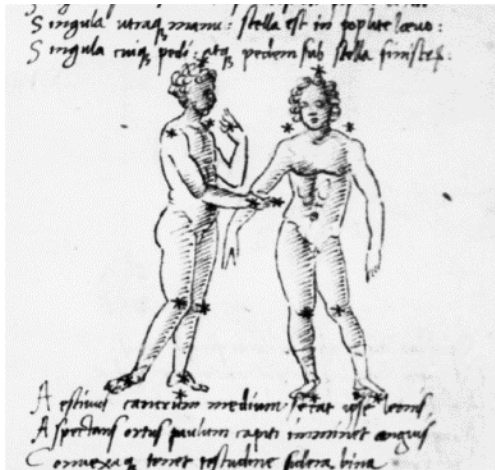 Singula utraq; manu: stella est in poplite lœuo:
Singula cuiq; pedi: atq; pedem sub stella
Aestiuus cancrum medium secat leonis,
Aspectans ortus paulum capiti imminet anguis
Conuexaq; tenet testudine sidera bina